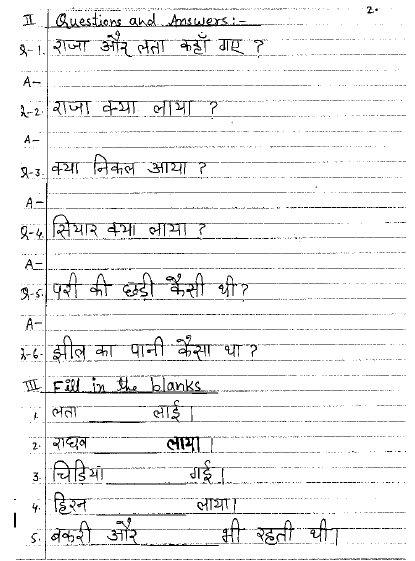 2.
II Questions and Answers:-
Q-1. राजा और लता कहाँ गए ?
A-
Q-2. राजा क्या लाया ?
A-
Q-3. क्या निकल आया ?
A-
Q-4. सियार क्या लाया ?
A-
Q-5. परी की छड़ी कैसी थी?
A-
Q-6. झील का पानी कैसा था ?
III Fill in the blanks
1. लता ________ लाई।
2. राघव ________ लाया।
3. चिड़िया ________ गई।
4. हिरन ________ लाया।
5. बकरी और ________ भी रहती थी।